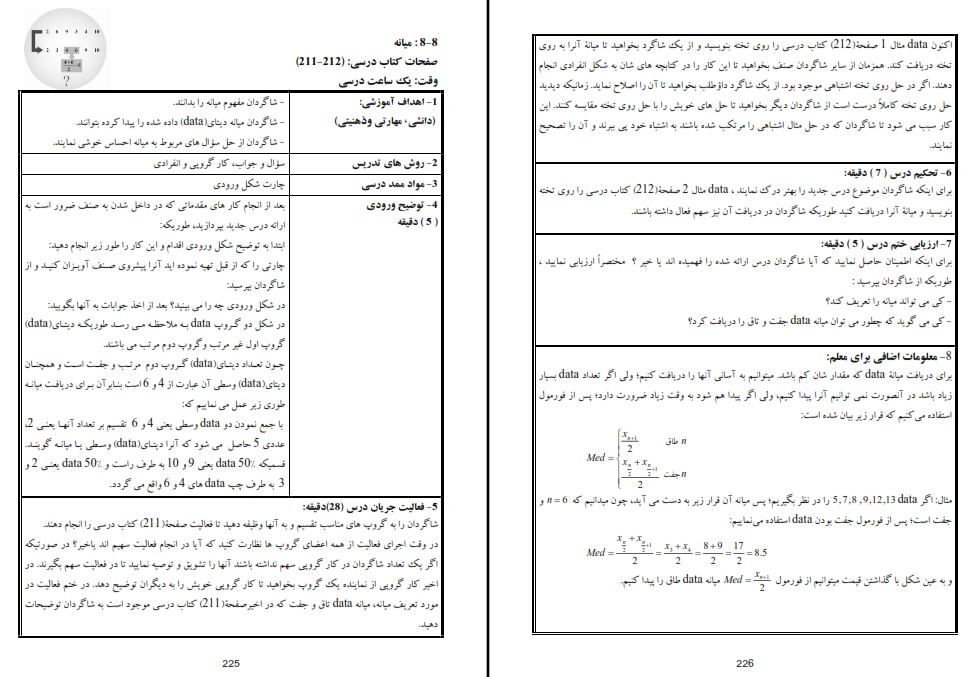 8-8: میانه
صفحات کتاب درسی: (212-211)
وقت: یک ساعت درسی
2 6 9 3 4 10
2 3 4 6 9 10
4+6
2
=5
?
1- اهداف آموزشی:
(دانشی، مهارتی وذهنیتی)
- شاگردان مفهوم میانه را بدانند.
- شاگردان میانه دیتای(data) داده شده را پیدا کرده بتوانند.
- شاگردان از حل سؤال های مربوط به میانه احساس خوشی نمایند.
2- روش های تدریس
سؤال و جواب، کار گروپی و انفرادی
3- مواد ممد درسی
چارت شکل ورودی
4- توضیح ورودی
( 5 ) دقیقه
بعد از انجام کار های مقدماتی که در داخل شدن به صنف ضرور است به
ارائه درس جدید بپردازید، طوریکه:
ابتدا به توضیح شکل ورودی اقدام و این کار را طور زیر انجام دهید:
چارتی را که از قبل تهیه نموده اید آنرا پیشروی صنف آویزان کنید و از
شاگردان بپرسید:
در شکل ورودی چه را می بینید؟ بعد از اخذ جوابات به آنها بگویید:
در شکل دو گروپ data به ملاحظه می رسد طوریکه دیتای(data)
گروپ اول غیر مرتب وگروپ دوم مرتب می باشند.
چون تعداد دیتای(data) گروپ دوم مرتب و جفت است و همچنان
دیتای(data) وسطی آن عبارت از 4 و 6 است بنابرآن برای دریافت میانه
طوری زیر عمل می نماییم که:
با جمع نمودن دو data وسطی یعنی 4 و 6 تقسیم بر تعداد آنها یعنی 2،
عددی 5 حاصل می شود که آنرا دیتای(data) وسطی یا میانه گویند.
قسمیکه 50% data یعنی 9 و 10 به طرف راست و 50% data یعنی 2 و
3 به طرف چپ data های 4 و 6 واقع می گردد.
5- فعالیت جریان درس (28)دقیقه:
شاگردان را به گروپ های مناسب تقسیم و به آنها وظیفه دهید تا فعالیت صفحۀ(211) کتاب درسی را انجام دهند.
در وقت اجرای فعالیت از همه اعضای گروپ ها نظارت کنید که آیا در انجام فعالیت سهیم اند یاخیر؟ در صورتیکه
اگر یک تعداد شاگردان در کار گروپی سهم نداشته باشند آنها را تشویق و توصیه نمایید تا در فعالیت سهم بگیرند. در
اخیر کار گروپی از نماینده یک گروپ بخواهید تا کار گروپی خویش را به دیگران توضیح دهد. در ختم فعالیت در
مورد تعریف میانه، میانه data تاق و جفت که در اخیرصفحۀ(211) کتاب درسی موجود است به شاگردان توضیحات
دهید.
225
اکنون data مثال 1 صفحۀ(212) کتاب درسی را روی تخته بنویسید و از یک شاگرد بخواهید تا میانۀ آنرا به روی
تخته دریافت کند. همزمان از سایر شاگردان صنف بخواهید تا این کار را در کتابچه های شان به شکل انفرادی انجام
دهند. اگر در حل روی تخته اشتباهی موجود بود، از یک شاگرد داؤطلب بخواهید تا آن را اصلاح نماید. زمانیکه دیدید
حل روی تخته کاملاً درست است از شاگردان دیگر بخواهید تا حل های خویش را با حل روی تخته مقایسه کنند. این
کار سبب می شود تا شاگردان که در حل مثال اشتباهی را مرتکب شده باشند به اشتباه خود پی ببرند و آن را تصحیح
نمایند.
6- تحکیم درس ( 7 ) دقیقه:
برای اینکه شاگردان موضوع درس جدید را بهتر درک نمایند ، data مثال 2 صفحۀ(212) کتاب درسی را روی تخته
بنویسید و میانۀ آنرا دریافت کنید طوریکه شاگردان در دریافت آن نیز سهم فعال داشته باشند.
7- ارزیابی ختم درس ( 5 ) دقیقه:
برای اینکه اطمینان حاصل نمایید که آیا شاگردان درس ارائه شده را فهمیده اند یا خیر ؟ مختصراً ارزیابی نمایید ،
طوریکه از شاگردان بپرسید :
- کی می تواند میانه را تعریف کند؟
- کی می گوید که چطور می توان میانه data جفت و تاق را دریافت کرد؟
8- معلومات اضافی برای معلم:
برای دریافت میانۀ data که مقدار شان کم باشد. میتوانیم به آسانی آنها را دریافت کنیم؛ ولی اگر تعداد data بسیار
زیاد باشد در آنصورت نمی توانیم آنرا پیدا کنیم، ولی اگر پیدا هم شود به وقت زیاد ضرورت دارد؛ پس از فورمول
استفاده می‌کنیم که قرار زیر بیان شده است:
Med = { x_{n+1}/2 n طاق
(x_{n/2} + x_{n/2+1})/2 n جفت
مثال: اگر data 5,7,8 ,9,12,13 را در نظر بگیریم؛ پس میانه آن قرار زیر به دست می آید، چون میدانیم که n = 6 و
جفت است؛ پس از فورمول جفت بودن data استفاده می‌نماییم:
Med = (x_{n/2} + x_{n/2+1})/2 = (x_3 + x_4)/2 = (8+9)/2 = 17/2 = 8.5
و به عین شکل با گذاشتن قیمت میتوانیم از فورمول Med = x_{n+1}/2 میانه data طاق را پیدا کنیم.
226